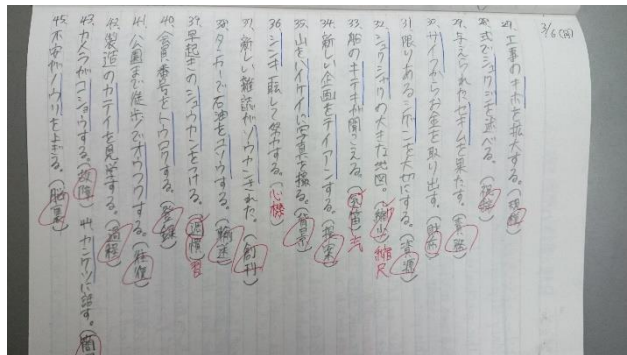 3/6(月)
工事のキボを拡大する。(規模)
28. 式でシュクジを述べる。(祝辞)
29. 与えられたセキムを果たす。(責務)
30. サイフからお金を取り出す。(財布)
31. 限りあるシゲンを大切にする。(資源)
32. シュクシャクの大きな地図。縮尺
33. 船のキテキが聞こえる。(汽笛)
34. 新しい企画をテイアンする。(提案)
35. 山をハイケイに写真を撮る。(背景)
36. シンキ一転して努力する。(心機)
37. 新しい雑誌がソウカンされた。(創刊)
38. タンカーで石油をユソウする。(輸送)
39. 早起きのシュウカンをつける。習
40. 会員番号をトウロクする。(登録)
41. 公園まで徒歩でオウフクする。(往復)
42. 製造のカテイを見学する。(過程)
43. カメラがコショウする。(故障)
44. カンケツに話す。(簡
45. 本家がノウリを上がる。(脳裏)